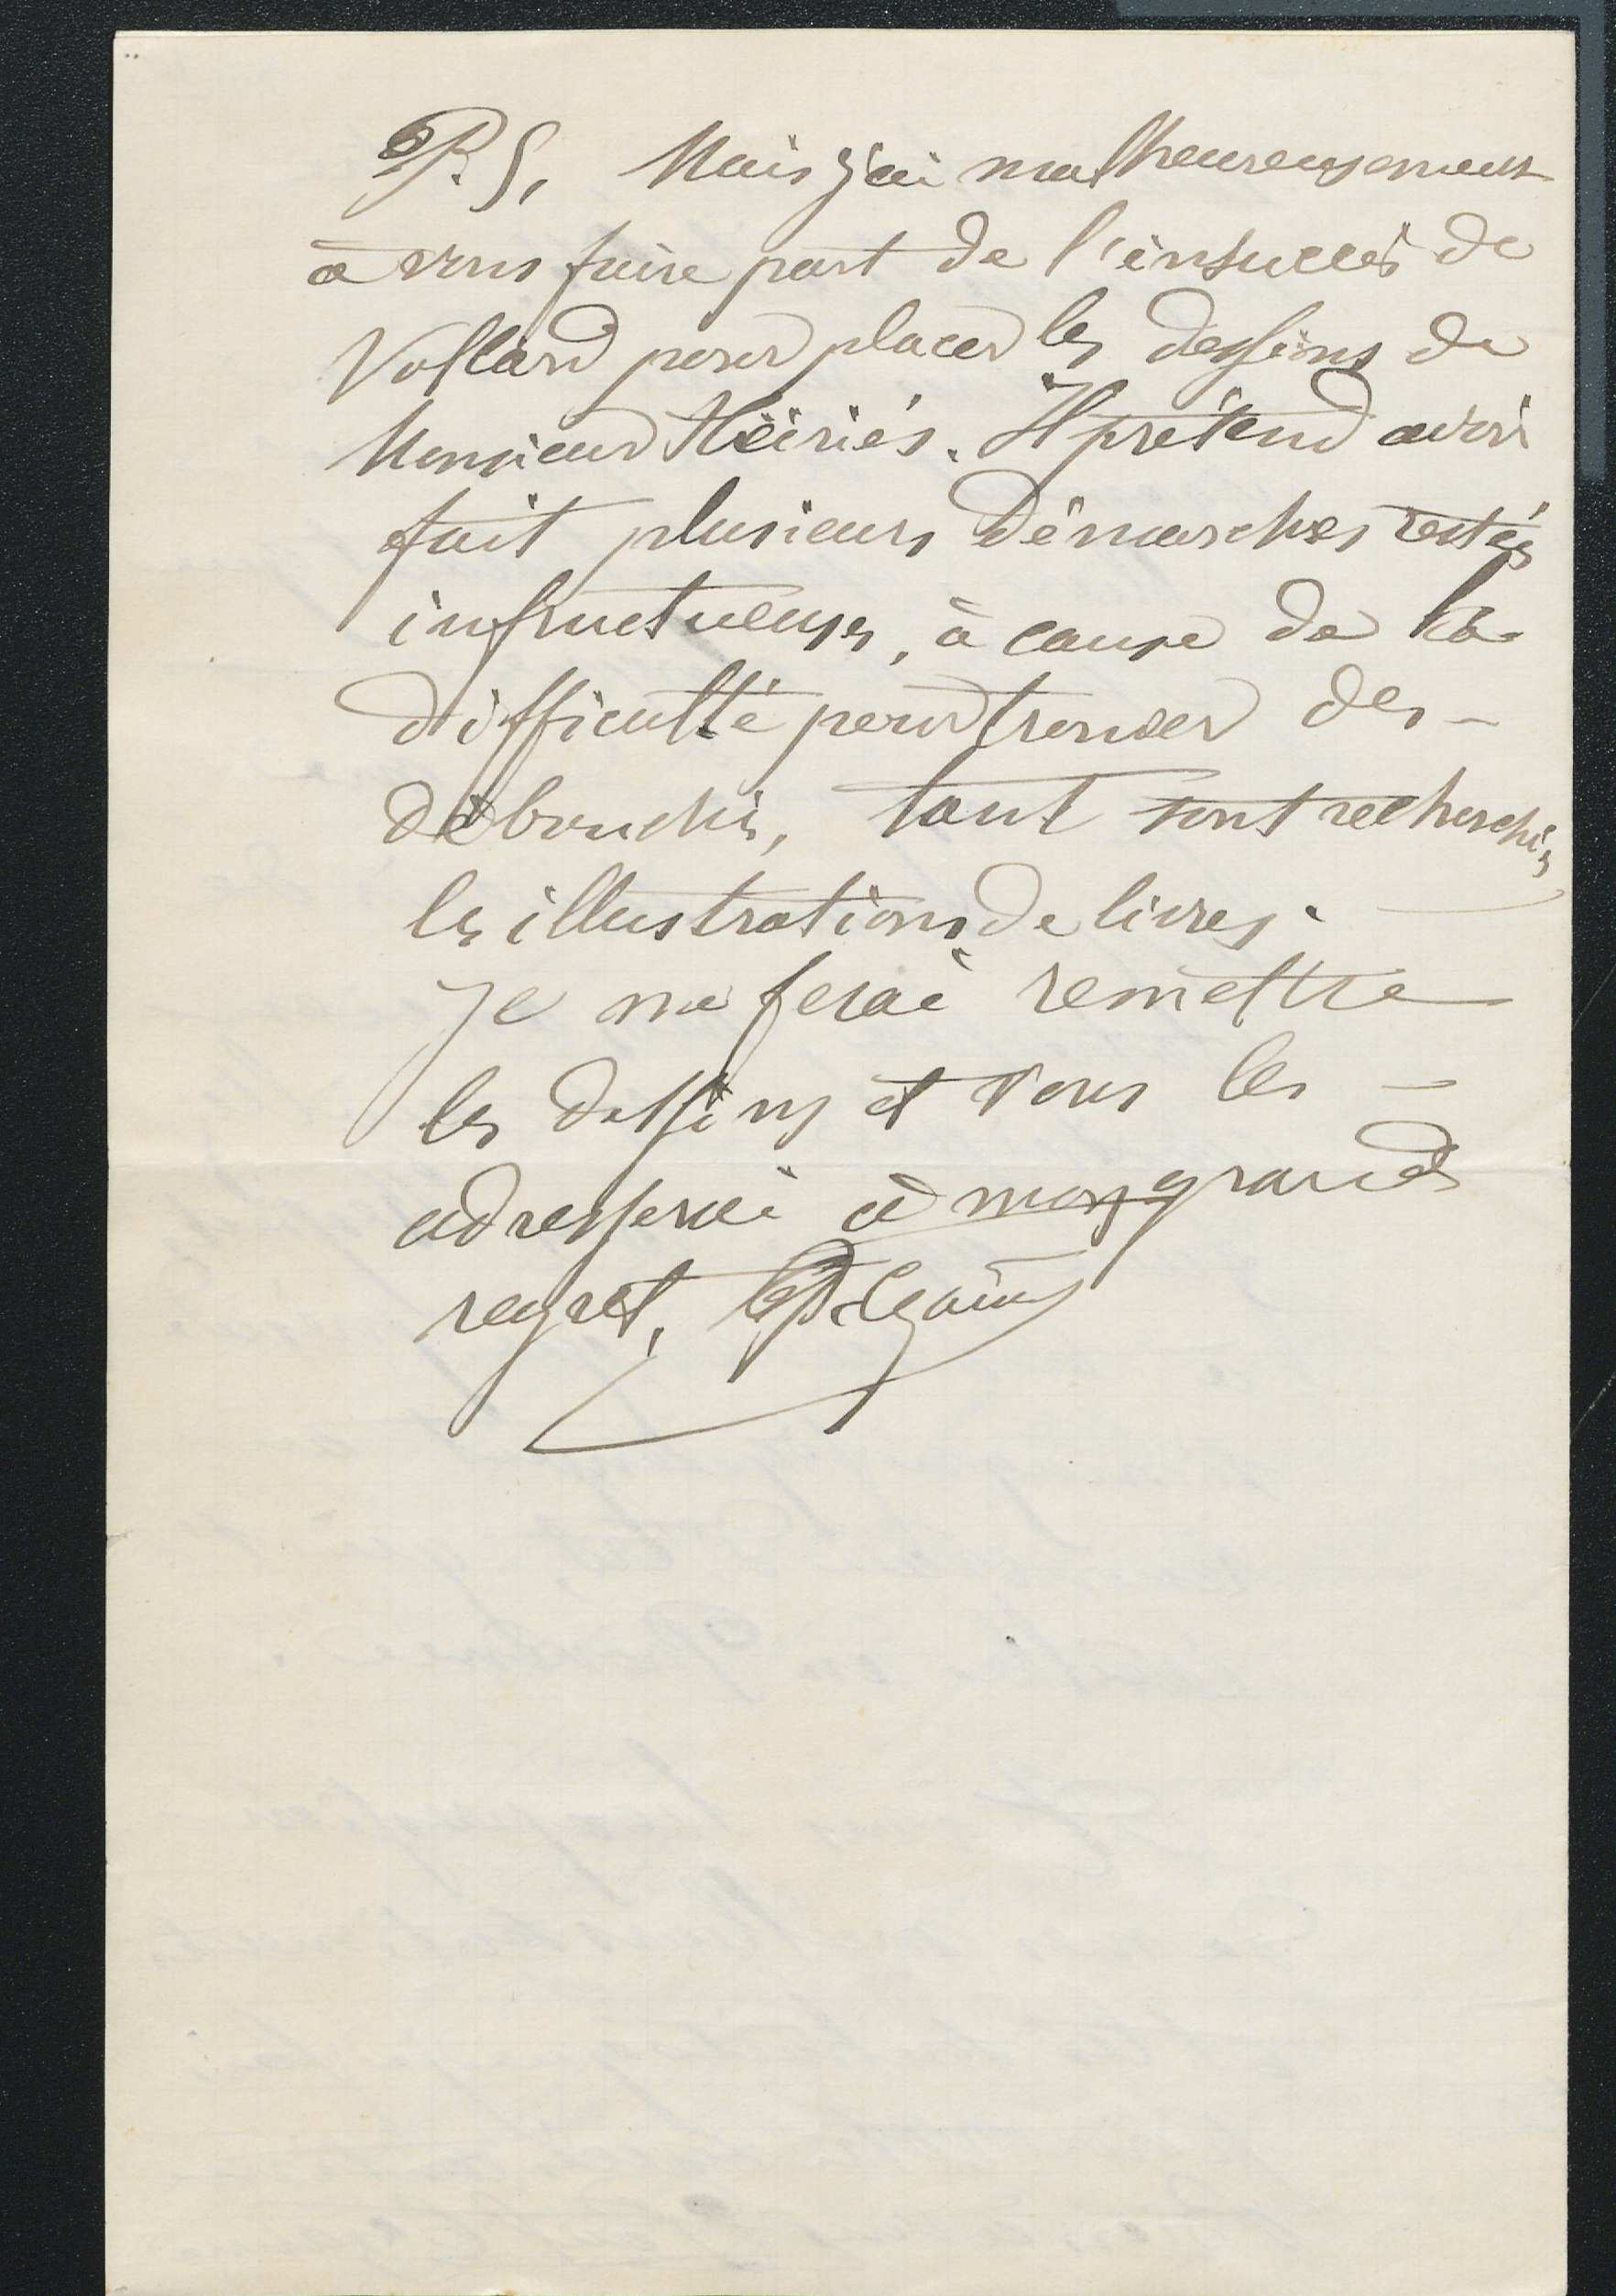 P.S. Mais j'ai malheureusement
à vous faire part de l'insuccès de
Vollard pour placer les dessins de
Monsieur Heïriés. Il prétend avoir
fait plusieurs démarches restées
infructueuses, à cause de la
difficulté pour trouver des -
débouchés, tant sont recherchés
les illustrations de livres.
Je me ferai remettre
les dessins et vous les -
adresserai à mon grand
regret.